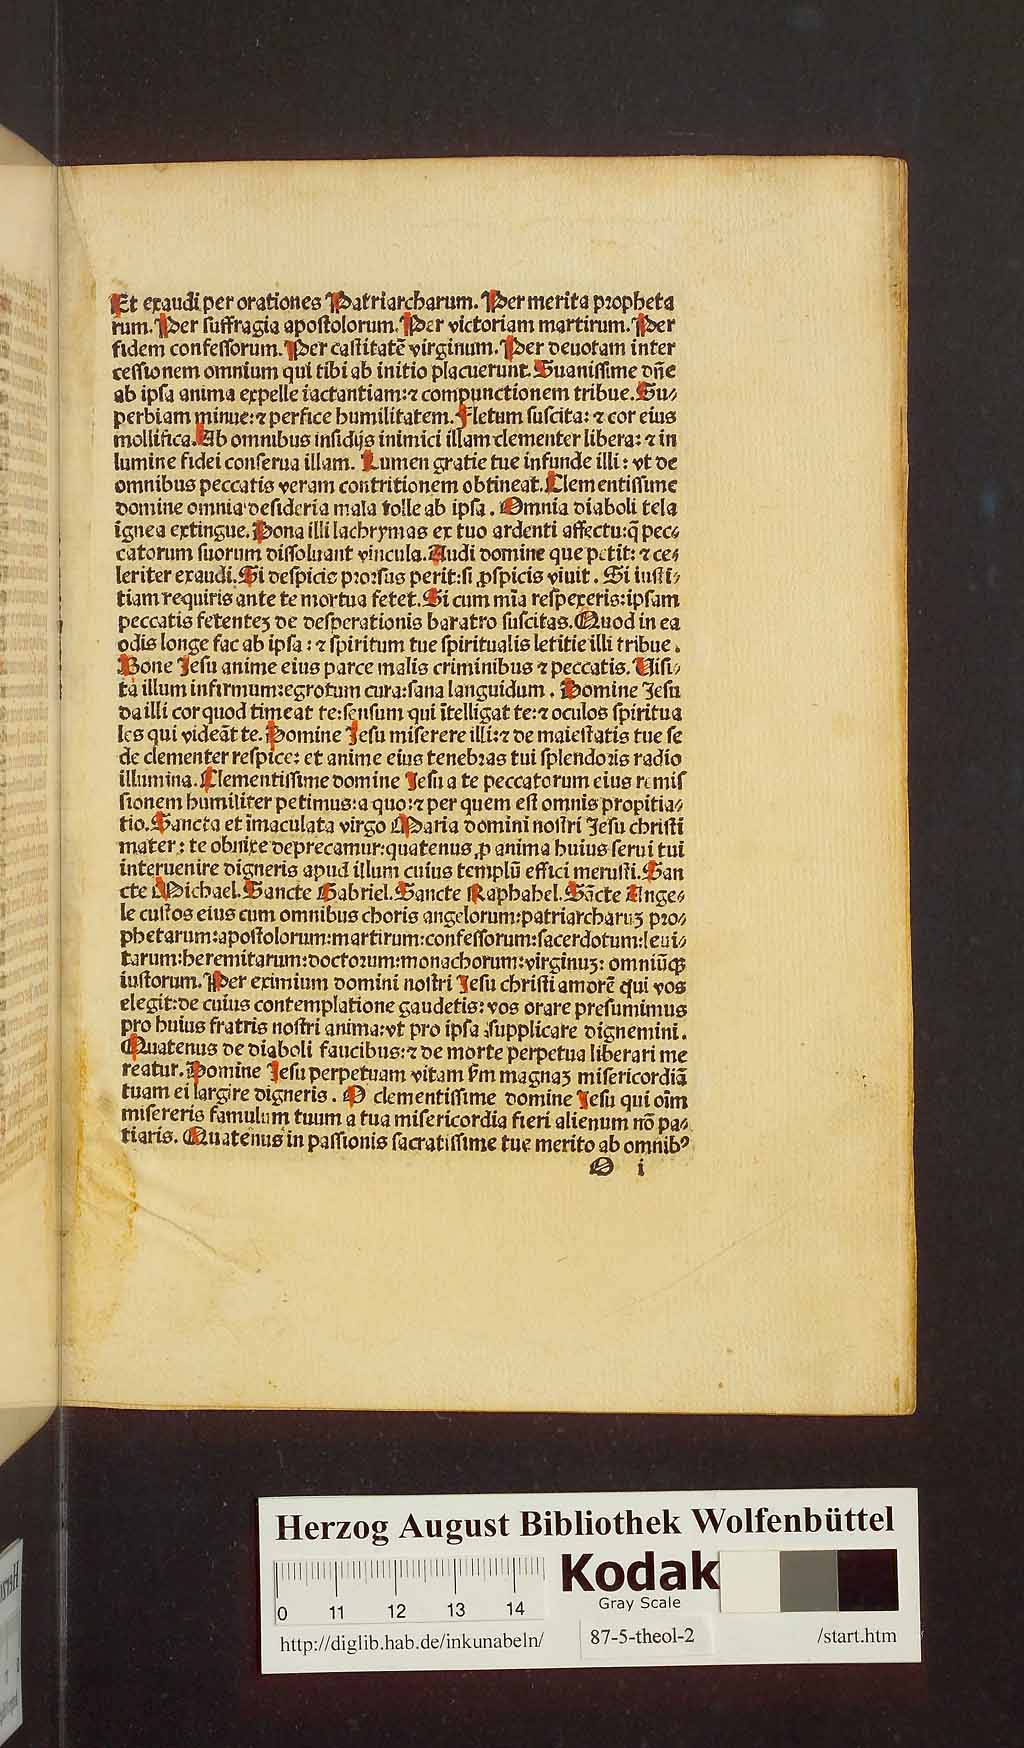 Et exaudi per orationes Patriarcharum. Per merita propheta
rum. Per suffragia apostolorum. Per victoriam martirum. Per
fidem confessorum. Per castitatē virginum. Per deuotam inter
cessionem omnium qui tibi ab initio placuerunt. Suauissime dn̄e
ab ipsa anima expelle iactantiam: ⁊ compunctionem tribue. Su⸗
perbiam minue: ⁊ perfice humilitatem. Fletum suscita: ⁊ cor eius
mollifica. Ab omnibus insidijs inimici illam clementer libera: ⁊ in
lumine fidei conserua illam. Lumen gratie tue infunde illi: vt de
omnibus peccatis veram contritionem obtineat. Clementissime
domine omnia desideria mala tolle ab ipsa. Omnia diaboli tela
ignea extingue. Dona illi lachrymas ex tuo ardenti affectu: q̄ pec⸗
catorum suorum dissoluant vincula. Audi domine que petit: ⁊ ce⸗
leriter exaudi. Si despicis prorsus perit: si ꝓspicis viuit. Si iusti⸗
tiam requiris ante te mortua fetet. Si cum mīa respexeris: ipsam
peccatis fetenteꝫ de desperationis baratro suscitas. Quod in ea
odis longe fac ab ipsa: ⁊ spiritum tue spiritualis letitie illi tribue.
Bone Jesu anime eius parce malis criminibus ⁊ peccatis. Uisi⸗
ta illum infirmum: egrotum cura: sana languidum. Domine Jesu
da illi cor quod timeat te: sensum qui ītelligat te: ⁊ oculos spiritua
les qui videāt te. Domine Jesu miserere illi: ⁊ de maiestatis tue se
de clementer respice: et anime eius tenebras tui splendoris radio
illumina. Clementissime domine Jesu a te peccatorum eius remis
sionem humiliter petimus: a quo: ⁊ per quem est omnis propitia⸗
tio. Sancta et īmaculata virgo Maria domini nostri Jesu christi
mater: te obnixe deprecamur: quatenus ꝓ anima huius serui tui
interuenire digneris apud illum cuius templū effici merusti. San
cte Michael. Sancte Gabriel. Sancte Raphahel. Sācte Ange⸗
le custos eius cum omnibus choris angelorum: patriarcharuꝫ pro⸗
phetarum: apostolorum: martirum: confessorum: sacerdotum: leui⸗
tarum: heremitarum: doctorum: monachorum: virginuꝫ: omniūqꝫ
iustorum. Per eximium domini nostri Jesu christi amorē qui vos
elegit: de cuius contemplatione gaudetis: vos orare presumimus
pro huius fratris nostri anima: vt pro ipsa supplicare dignemini.
Quatenus de diaboli faucibus: ⁊ de morte perpetua liberari me
reatur. Domine Jesu perpetuam vitam ẜm magnaꝫ misericordiā
tuam ei largire digneris. O clementissime domine Jesu qui oīm
misereris famulum tuum a tua misericordia fieri alienum nō pa⸗
tiaris. Quatenus in passionis sacratissime tue merito ab omnibꝰ
O i
Herzog August Bibliothek Wolfenbüttel
0 11 12 13 14
Kodak
Gray Scale
http://diglib.hab.de/inkunabeln/
87-5-theol-2
/start.htm